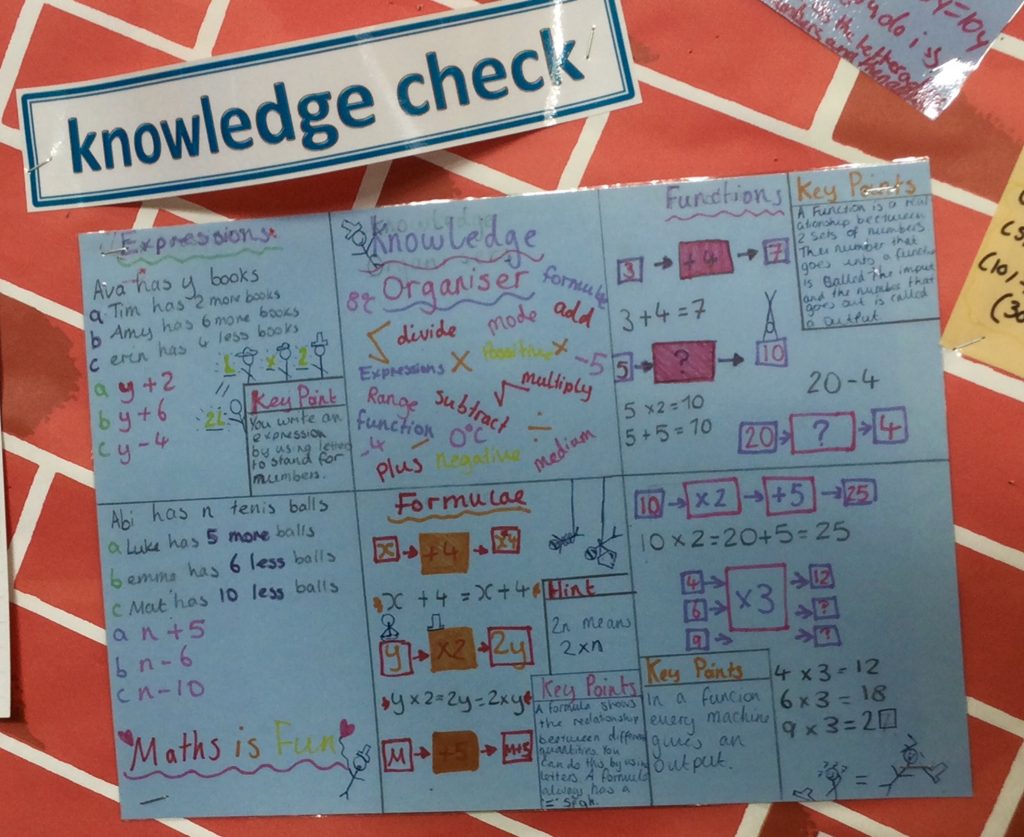 knowledge check
Expressions
Ava has y books
a Tim has 2 more books
b Amy has 6 more books
c erin has 4 less books
a y + 2
b y + 6
c y - 4
Key Point
You write an
expression
by using letters
to stand for
numbers.
Knowledge
Organiser
formulae
divide
mode
add
Expressions
Possitive
-5
Range
Subtract
multiply
function
0°c
-4
plus
negative
medium
Functions
3 → +4 → 7
3 + 4 = 7
5 → ? → 10
5 × 2 = 10
5 + 5 = 10
20 - 4
20 → ? → 4
Key Points
A Function is a real
ationship between
2 sets of numbers.
The number that
goes into a function
is called the input
and the number that
goes out is called
a output
Abi has n tenis balls
a Luke has 5 more balls
b emma has 6 less balls
c Mat has 10 less balls
a n + 5
b n - 6
c n - 10
Maths is Fun
Formulae
x → +4 → x4
x + 4 = x + 4
y → ×2 → 2y
y × 2 = 2y = 2×y
M → +5 → M+5
Hint
2n means
2×n
Key Points
A formula shows
the relationship
between different
quantities. You
can do this by using
letters. A formula
always has a
"=" sign.
10 → ×2 → +5 → 25
10 × 2 = 20 + 5 = 25
4 → ×3 → 12
6 → ?
9 → ?
Key Points
In a funcion
every machine
gives an
output.
4 × 3 = 12
6 × 3 = 18
9 × 3 = 2